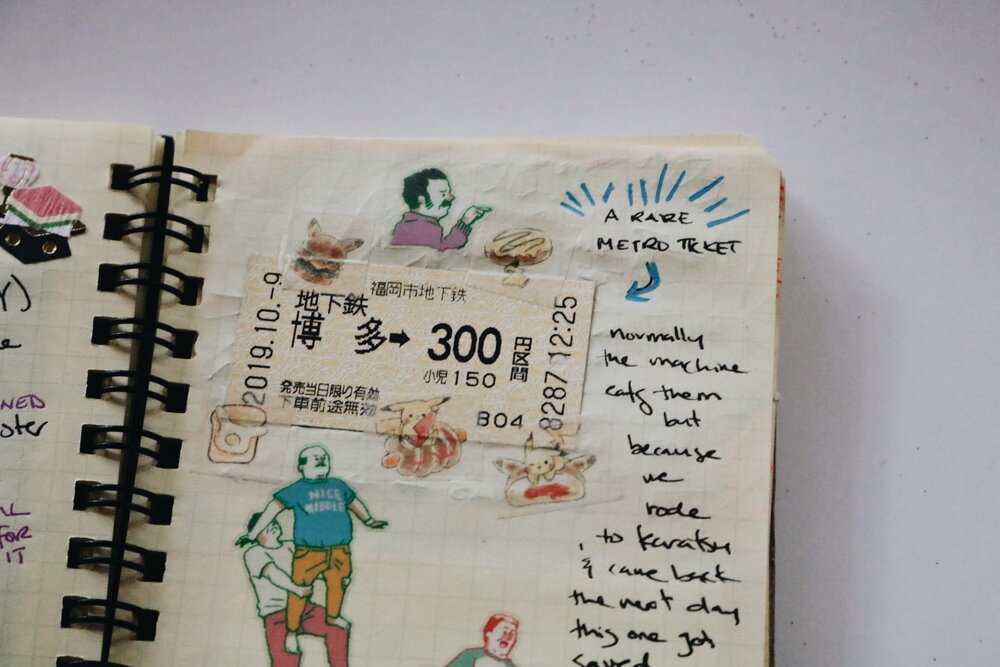 NED
oter
FOR
IT
A RARE
METRO TICKET
2019.10.-9
福岡市地下鉄
地下鉄
博多➡300円区間
小児150
発売当日限り有効
下車前途無効
B04
8287 12:25
NICE
MIDDLE
normally
the machine
eats them
but
because
we
rode
to Karatsu
& came back
the next day
this one got
saved